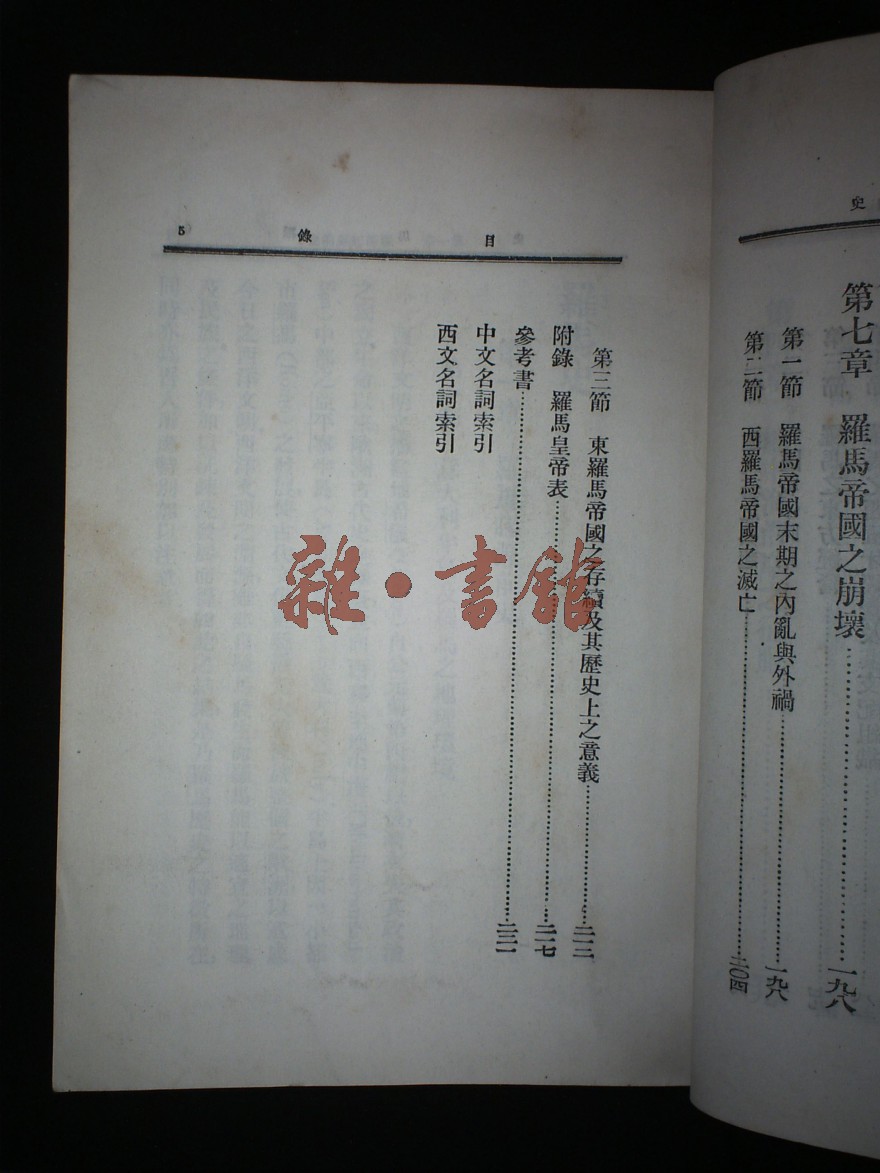 史
第七章　羅馬帝國之崩壞……一九八
第一節　羅馬帝國末期之內亂與外禍……一九八
第二節　西羅馬帝國之滅亡……二〇四
目錄 5
第三節　東羅馬帝國之存續及其歷史上之意義……二一二
附錄　羅馬皇帝表……二一七
參考書……二二一
中文名詞索引
西文名詞索引
雜·書館